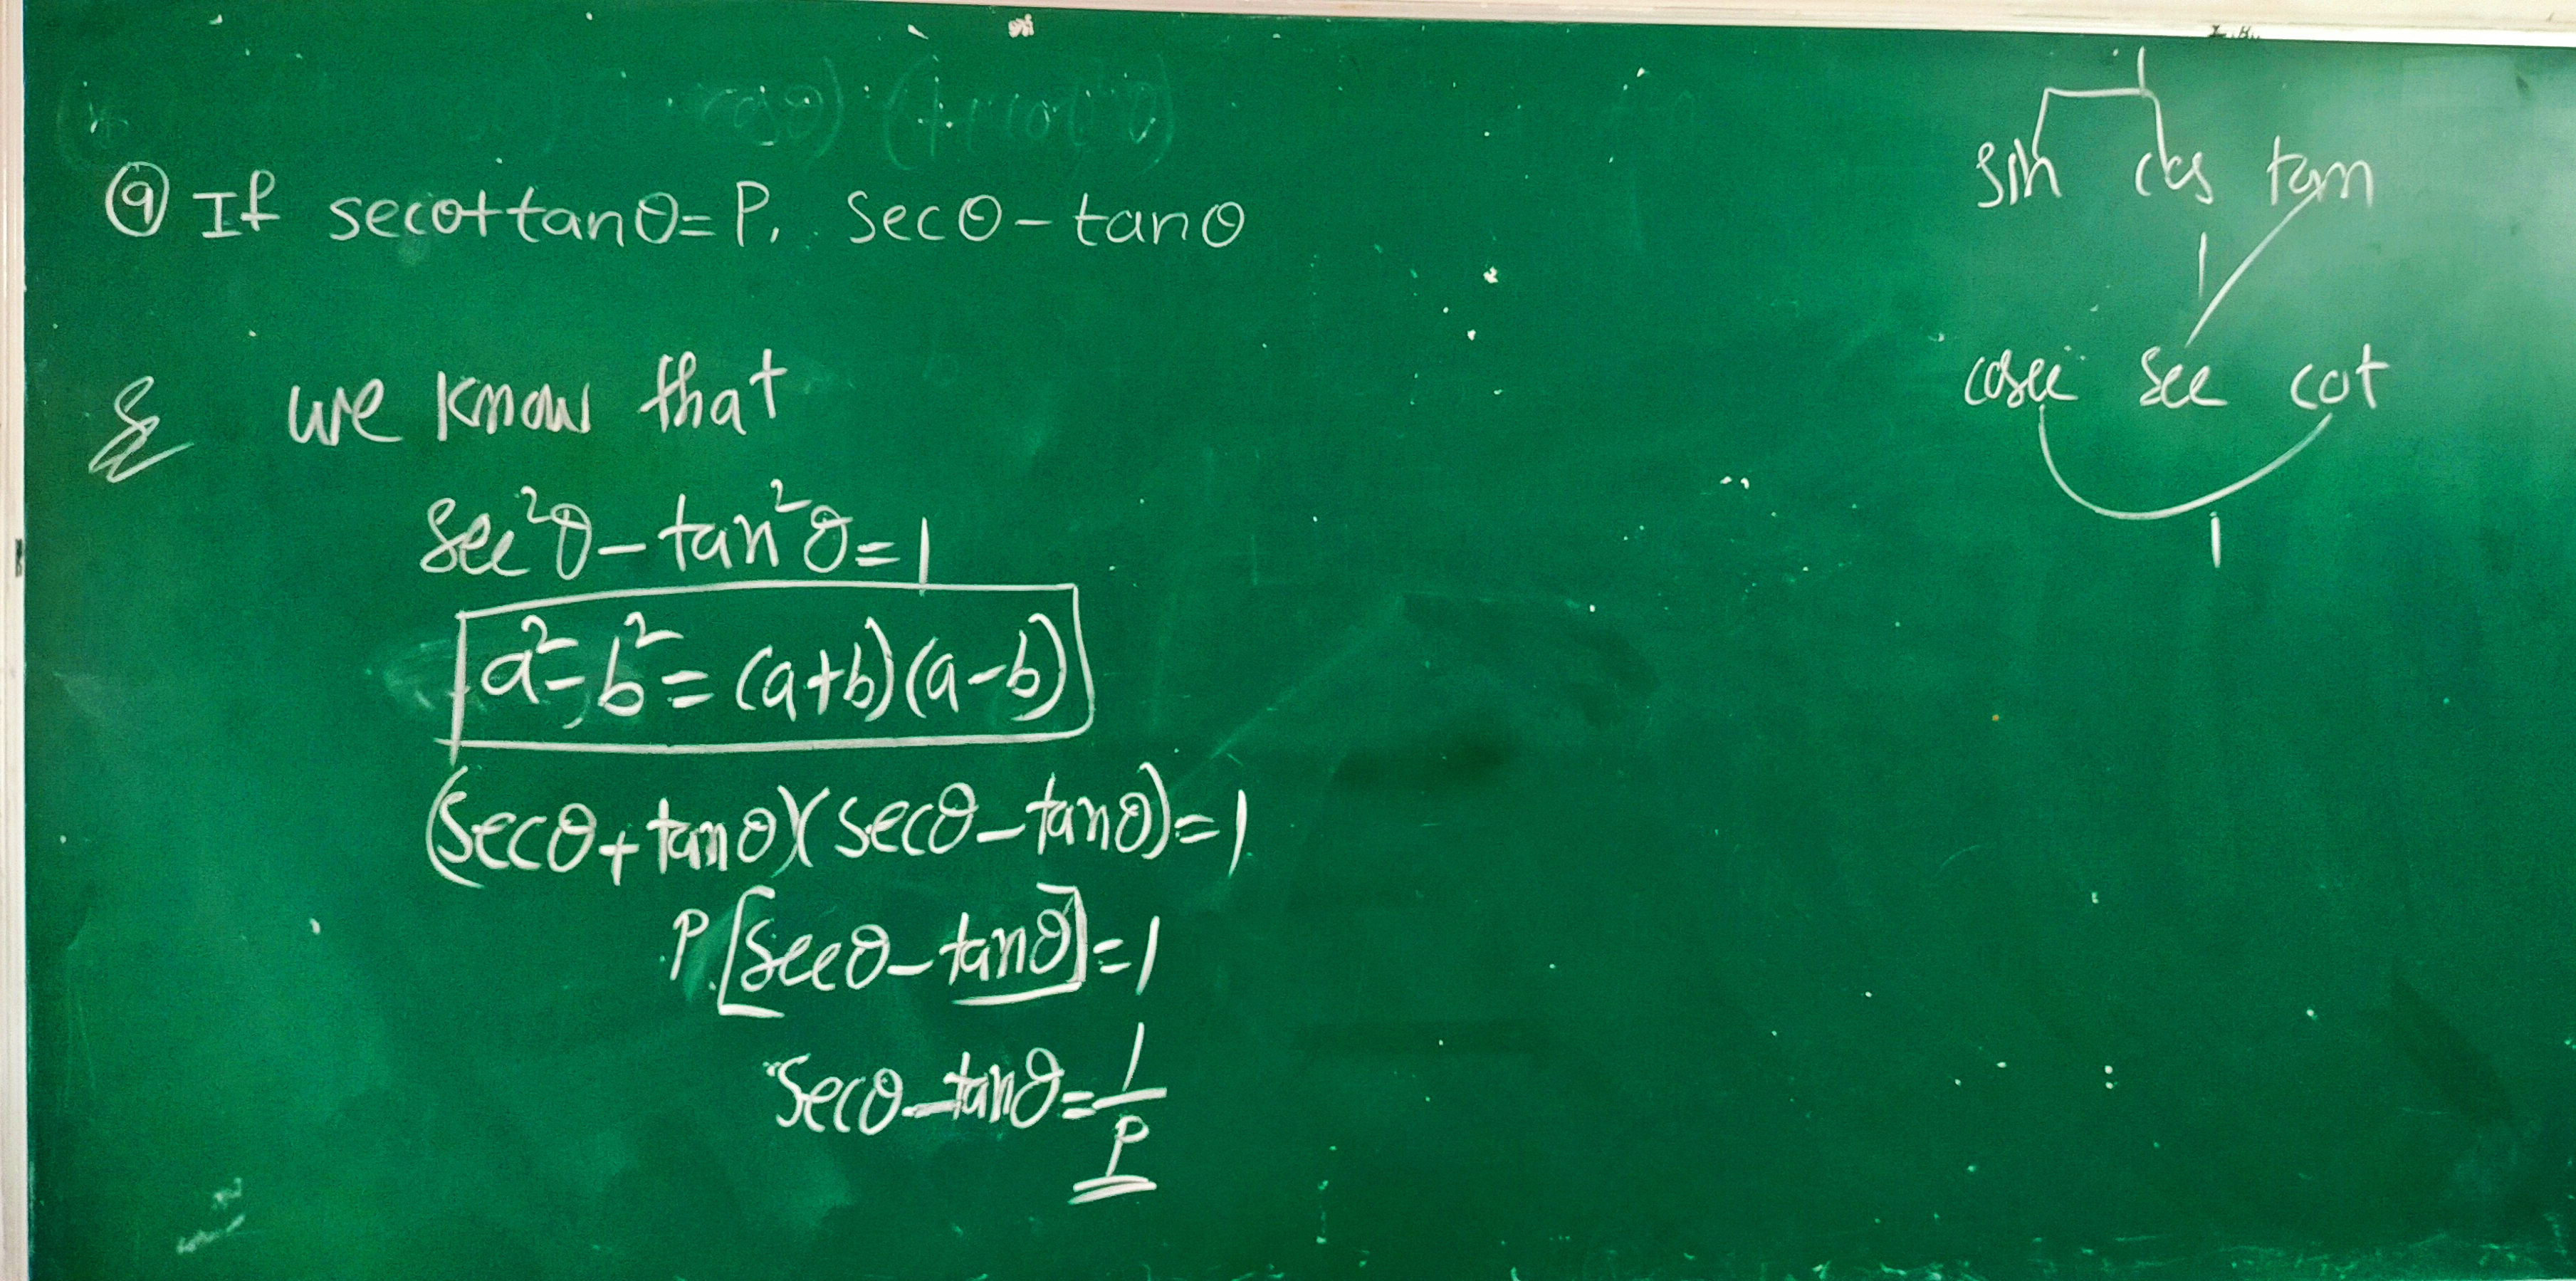 ⑨ If secθ+tanθ=P, secθ-tanθ
we know that
sec²θ-tan²θ=1
a²-b²=(a+b)(a-b)
(secθ+tanθ)(secθ-tanθ)=1
P[secθ-tanθ]=1
secθ-tanθ=1/P
1
sin cos tan
1
cosec sec cot
1